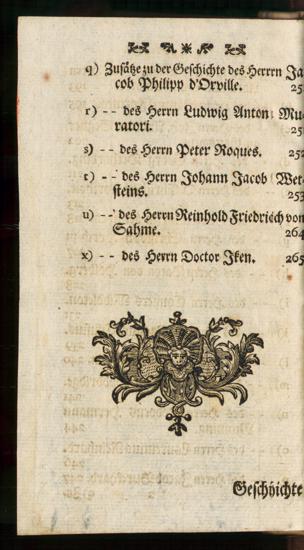 q) Zusätze zu der Geschichte des Herrn Ja
cob Philipp d'Orville. 25
r) -- des Herrn Ludwig Anton Mu-
ratori. 251
s) -- des Herrn Peter Roques. 252
t) -- des Herrn Johann Jacob Wet-
steins. 253
u) -- des Herrn Reinhold Friedrich von
Sahme. 264
x) -- des Herrn Doctor Iken. 265
Geschichte